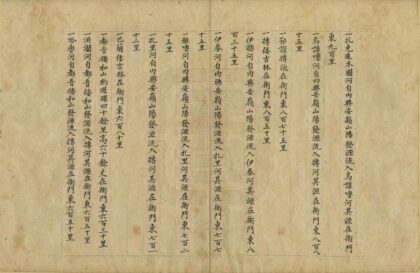 一扎克達木爾河自內興安嶺山陽發源流入烏謀河其源在衙門
東九百里
一烏謀河自內興安嶺山陽發源流入河其源在衙門東八百八
十五里
一孫池在衙門東八百七十五里
一倭吉林在衙門東八百五十里
一伊河自內興安嶺山陽發源流入伊春河其源在衙門東八
百三十五里
一伊春河自內興安嶺山陽發源流入扎里河其源在衙門東七百七
十五里
一河自內興安嶺山陽發源流入扎里河其源在衙門東七百二
十五里
一扎里河自內興安嶺山陽發源流入河其源在衙門東七百一
十二里
一巴爾倭吉林在衙門東六百八十里
一都倭和山約迴環四十餘里高六十餘丈在衙門東六百三十里
一洪爾河自都倭和山發源流入河其源在衙門東六百五十里
一哈魯河自都倭和山發源流入河其源在衙門東六百五十里